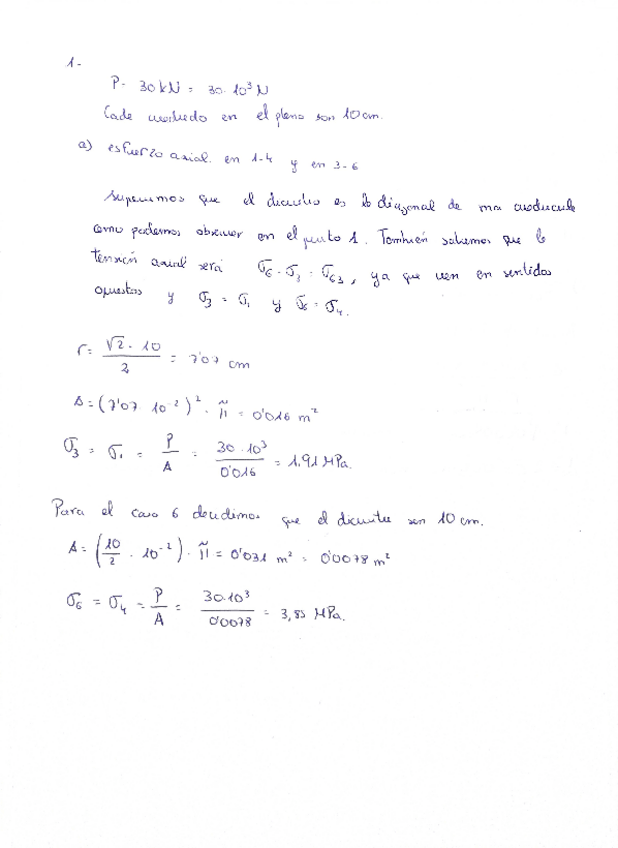 1-
P = 30 kN = 30·10³ N
Cada cuadrado en el plano son 10 cm.
a) esfuerzo axial en 1-4 y en 3-6
Suponemos que el diámetro es la diagonal de una
como podemos observar en el punto 1. También sabemos que la
tensión axial será σ6 - σ3 = σ63, ya que van en sentidos
opuestos y σ3 = σ1 y σ6 = σ4.
r = √2 · 10 / 2 = 7'07 cm
A = (7'07 · 10⁻²)² · π = 0'016 m²
σ3 = σ1 = P / A = 30·10³ / 0'016 = 1,91 MPa.
Para el caso 6 decidimos que el diámetro son 10 cm.
A = (10 / 2 · 10⁻²) · π = 0'031 m² = 0'0078 m²
σ6 = σ4 = P / A = 30·10³ / 0'0078 = 3,85 MPa.